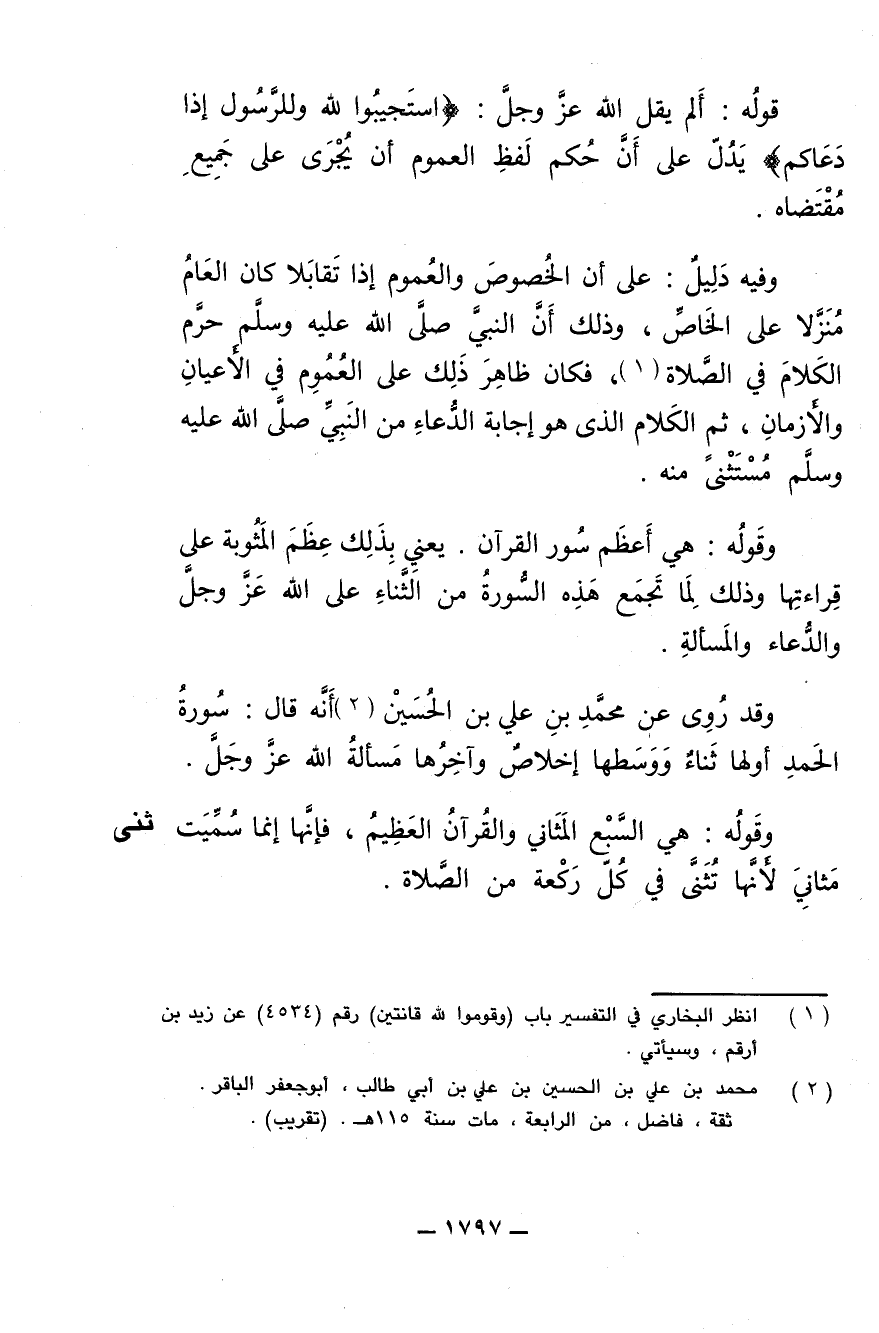 قولُه : أَلم يقل الله عزَّ وجلَّ : ﴿استَجيبُوا لله وللرَّسُول إذا
دَعَاكم﴾ يَدُلّ على أَنَّ حُكم لَفظِ العموم أن يُجْرَى على جَمِيعِ
مُقْتَضاه .
وفيه دَلِيلٌ : على أن الخُصوصَ والعُموم إذا تَقابَلا كان العَامُ
مُنَزَّلا على الخَاصِّ ، وذلك أَنَّ النبيَّ صلَّى الله عليه وسلَّم حرَّم
الكَلامَ في الصَّلاة (١)، فكان ظاهِرَ ذَلِك على العُمُوم في الأَعيانِ
والأَزمانِ ، ثم الكَلام الذى هو إجابة الدُّعاءِ من النَبِيِّ صلَّى الله عليه
وسلَّم مُسْتَثْنىً منه .
وقَولُه : هي أَعظَم سُور القرآن . يعني بِذَلِك عِظَمَ المَثُوبة على
قِراءتِها وذلك لِمَا تَجمَع هَذِه السُّورةُ من الثَّناءِ على الله عَزَّ وجلَّ
والدُّعاء والمَسألةِ .
وقد رُوِى عن محمَّدِ بنِ علي بن الحُسَيْن (٢)أَنَّه قال : سُورةُ
الحَمدِ أولها ثَناءٌ وَوَسَطها إخلاصٌ وآخِرُها مَسألةُ الله عزَّ وجَلَّ .
وقَولُه : هي السَّبْع المَثاني والقُرآنُ العَظِيمُ ، فإنَّها إنما سُمِّيَت ثنى
مَثانيَ لأَنَّها تُثَنَّى في كُلّ رَكْعة من الصَّلاة .
(١) انظر البخاري في التفسير باب (وقوموا لله قانتين) رقم (٤٥٣٤) عن زيد بن
أرقم ، وسيأتي .
(٢) محمد بن علي بن الحسين بن علي بن أبي طالب ، أبوجعفر الباقر .
ثقة ، فاضل ، من الرابعة ، مات سنة ١١٥هـ . (تقريب) .
— ١٧٩٧ —